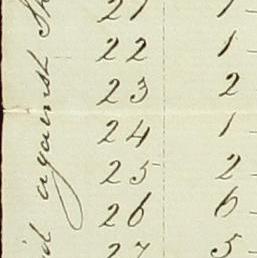 21 1
22 1
23 2
24 1
25 2
26 6
27 5
against